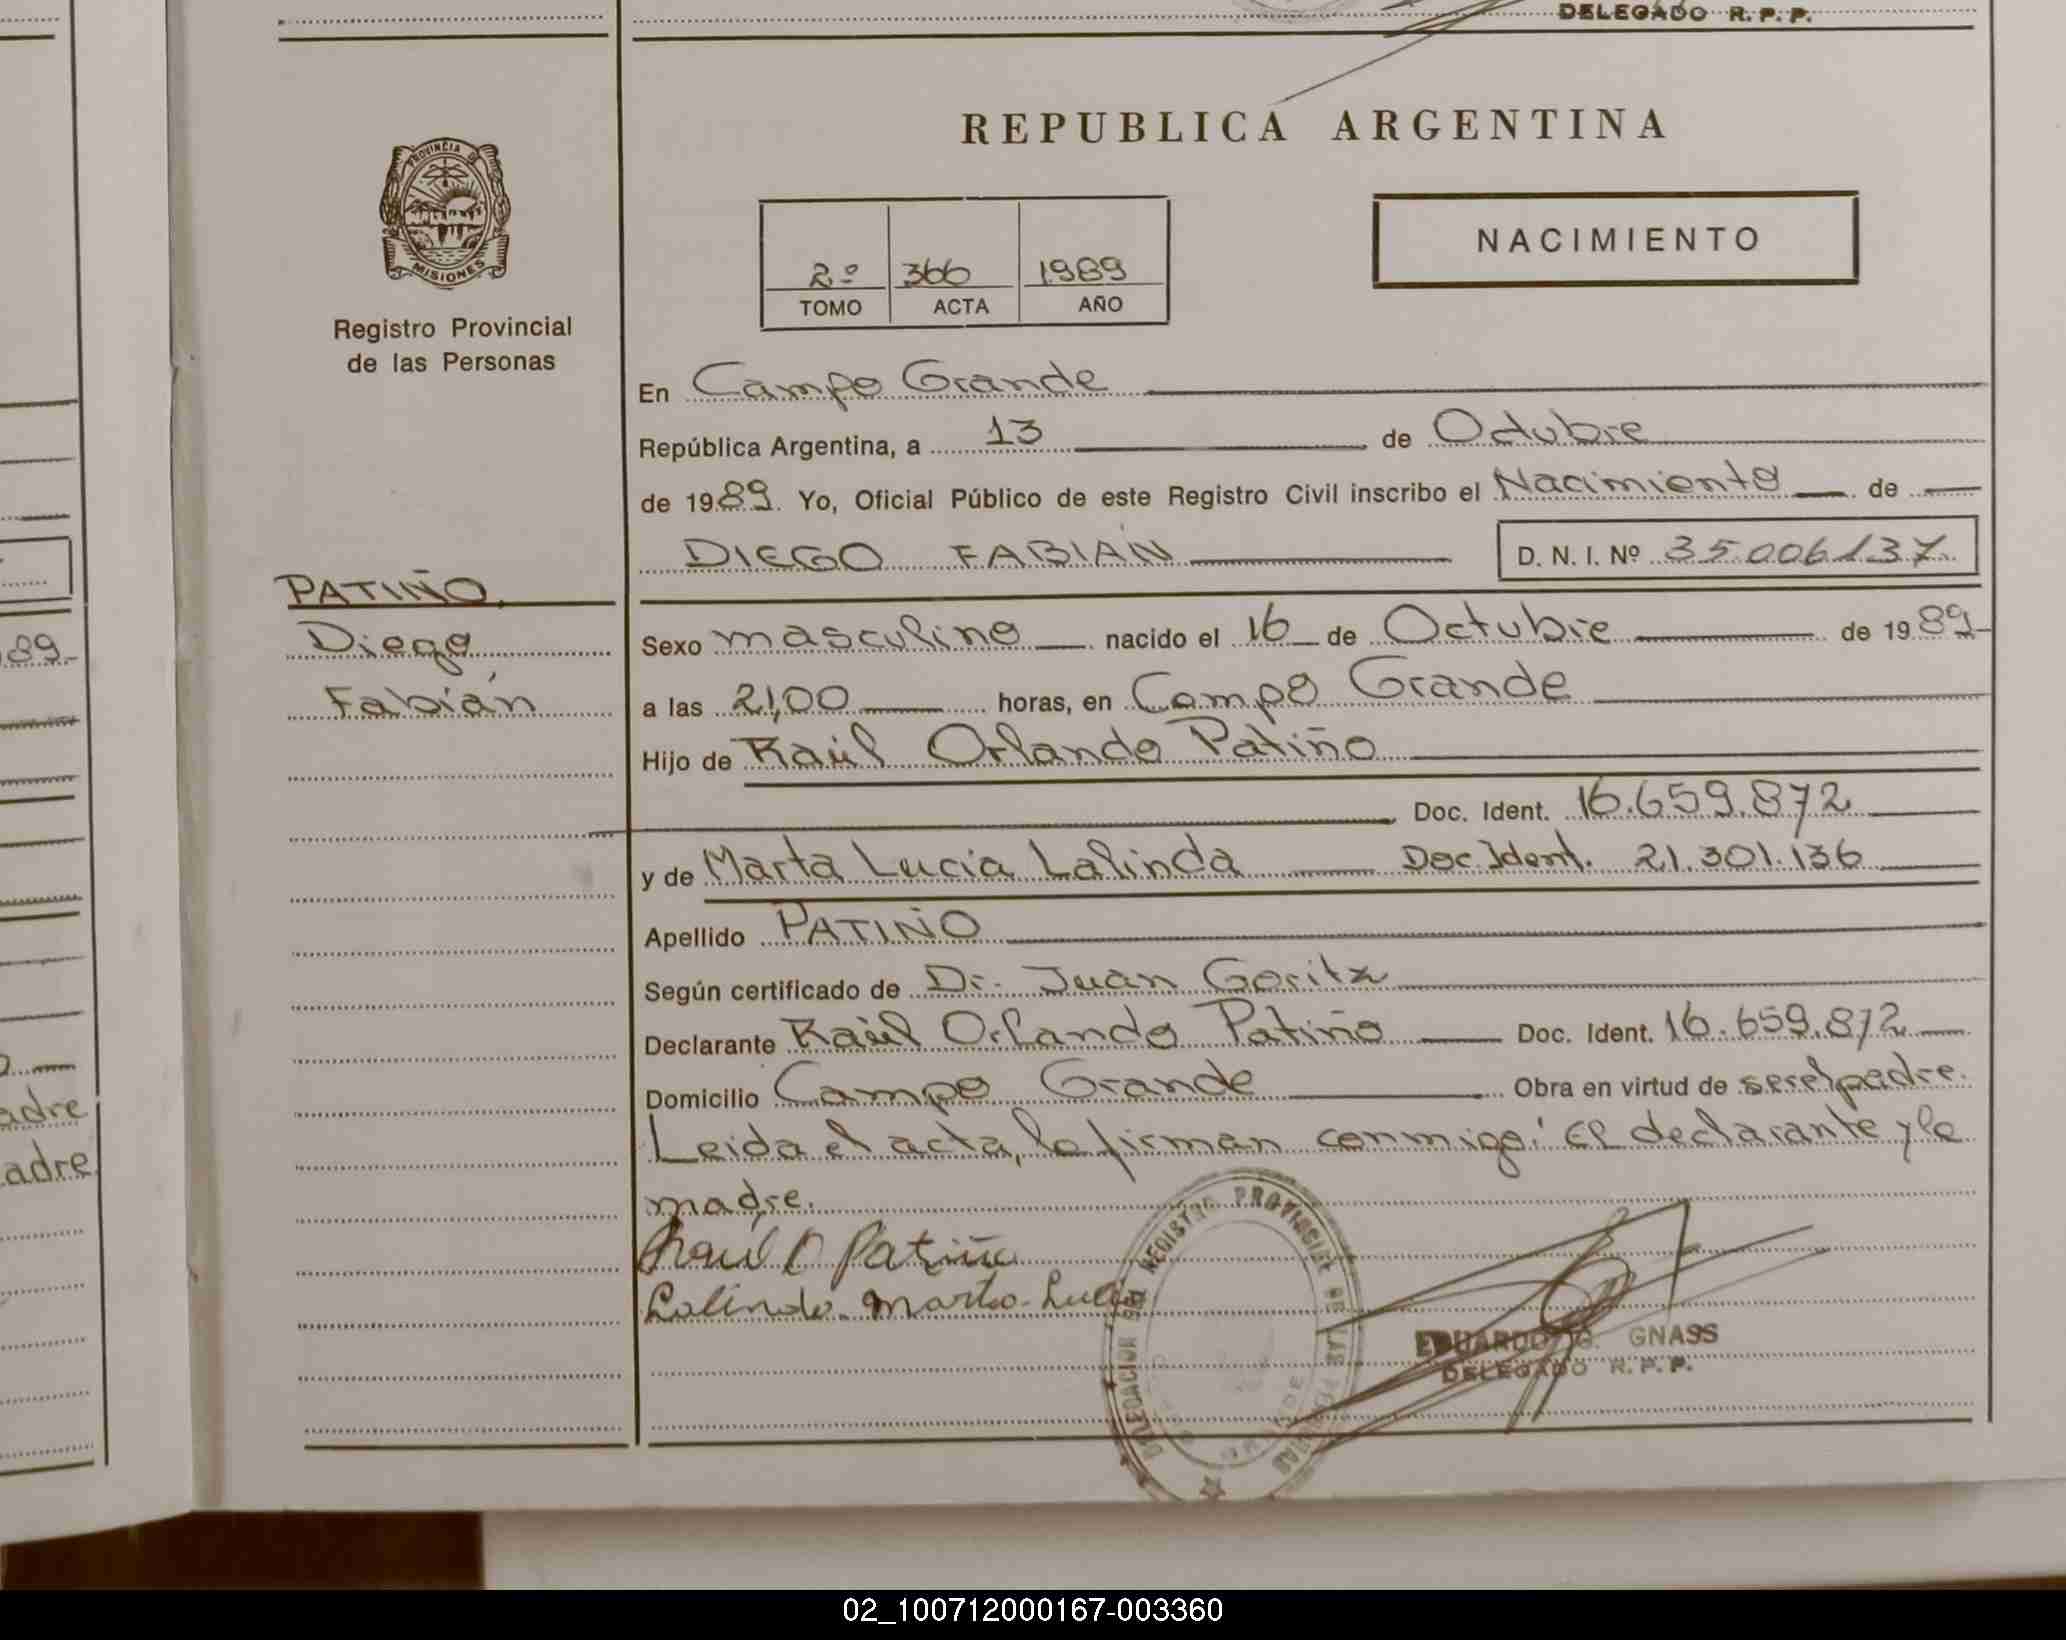 DELEGADO R. P. P.
REPUBLICA ARGENTINA
PROVINCIA DE
MISIONES
Registro Provincial
de las Personas
NACIMIENTO
2º 366 1989
TOMO ACTA AÑO
En Campo Grande
República Argentina, a 13 de Octubre
de 1989. Yo, Oficial Público de este Registro Civil inscribo el Nacimiento de
DIEGO FABIÁN D. N. I. Nº 35.006.137
PATIÑO
Diego
Fabián
Sexo masculino nacido el 16 de Octubre de 1989
a las 21,00 horas, en Campo Grande
Hijo de Raúl Orlando Patiño
Doc. Ident. 16.659.872
y de Marta Lucía Lalinda Doc. Ident. 21.301.136
Apellido PATIÑO
Según certificado de Dr. Juan Goritz
Declarante Raúl Orlando Patiño Doc. Ident. 16.659.872
Domicilio Campo Grande Obra en virtud de ser el padre.
Leida el acta, la firman conmigo: el declarante y la
madre.
Raúl O Patiño
Lalinda Marta Lucia
DELEGACION DEL REGISTRO PROVINCIAL DE LAS PERSONAS
EDUARDO G. GNASS
DELEGADO R. P. P.
89
adre
adre
02_100712000167-003360